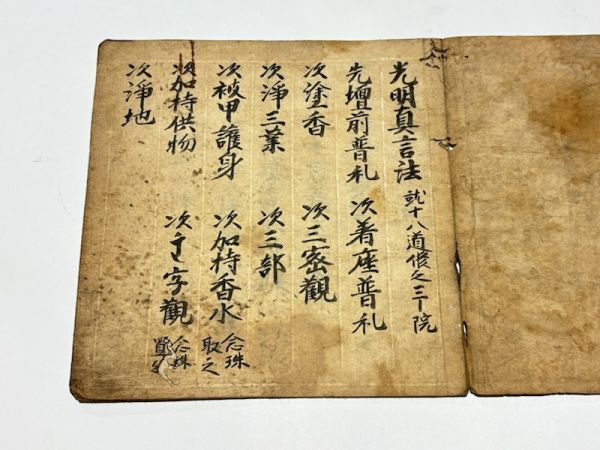 光明真言法 就十八道修之三卩院
先壇前普礼 次着座普礼
次塗香 次三密觀
次淨三業 次三部
次被甲護身 次加持香水 念珠取之
次加持供物 次字觀 念珠
次淨地